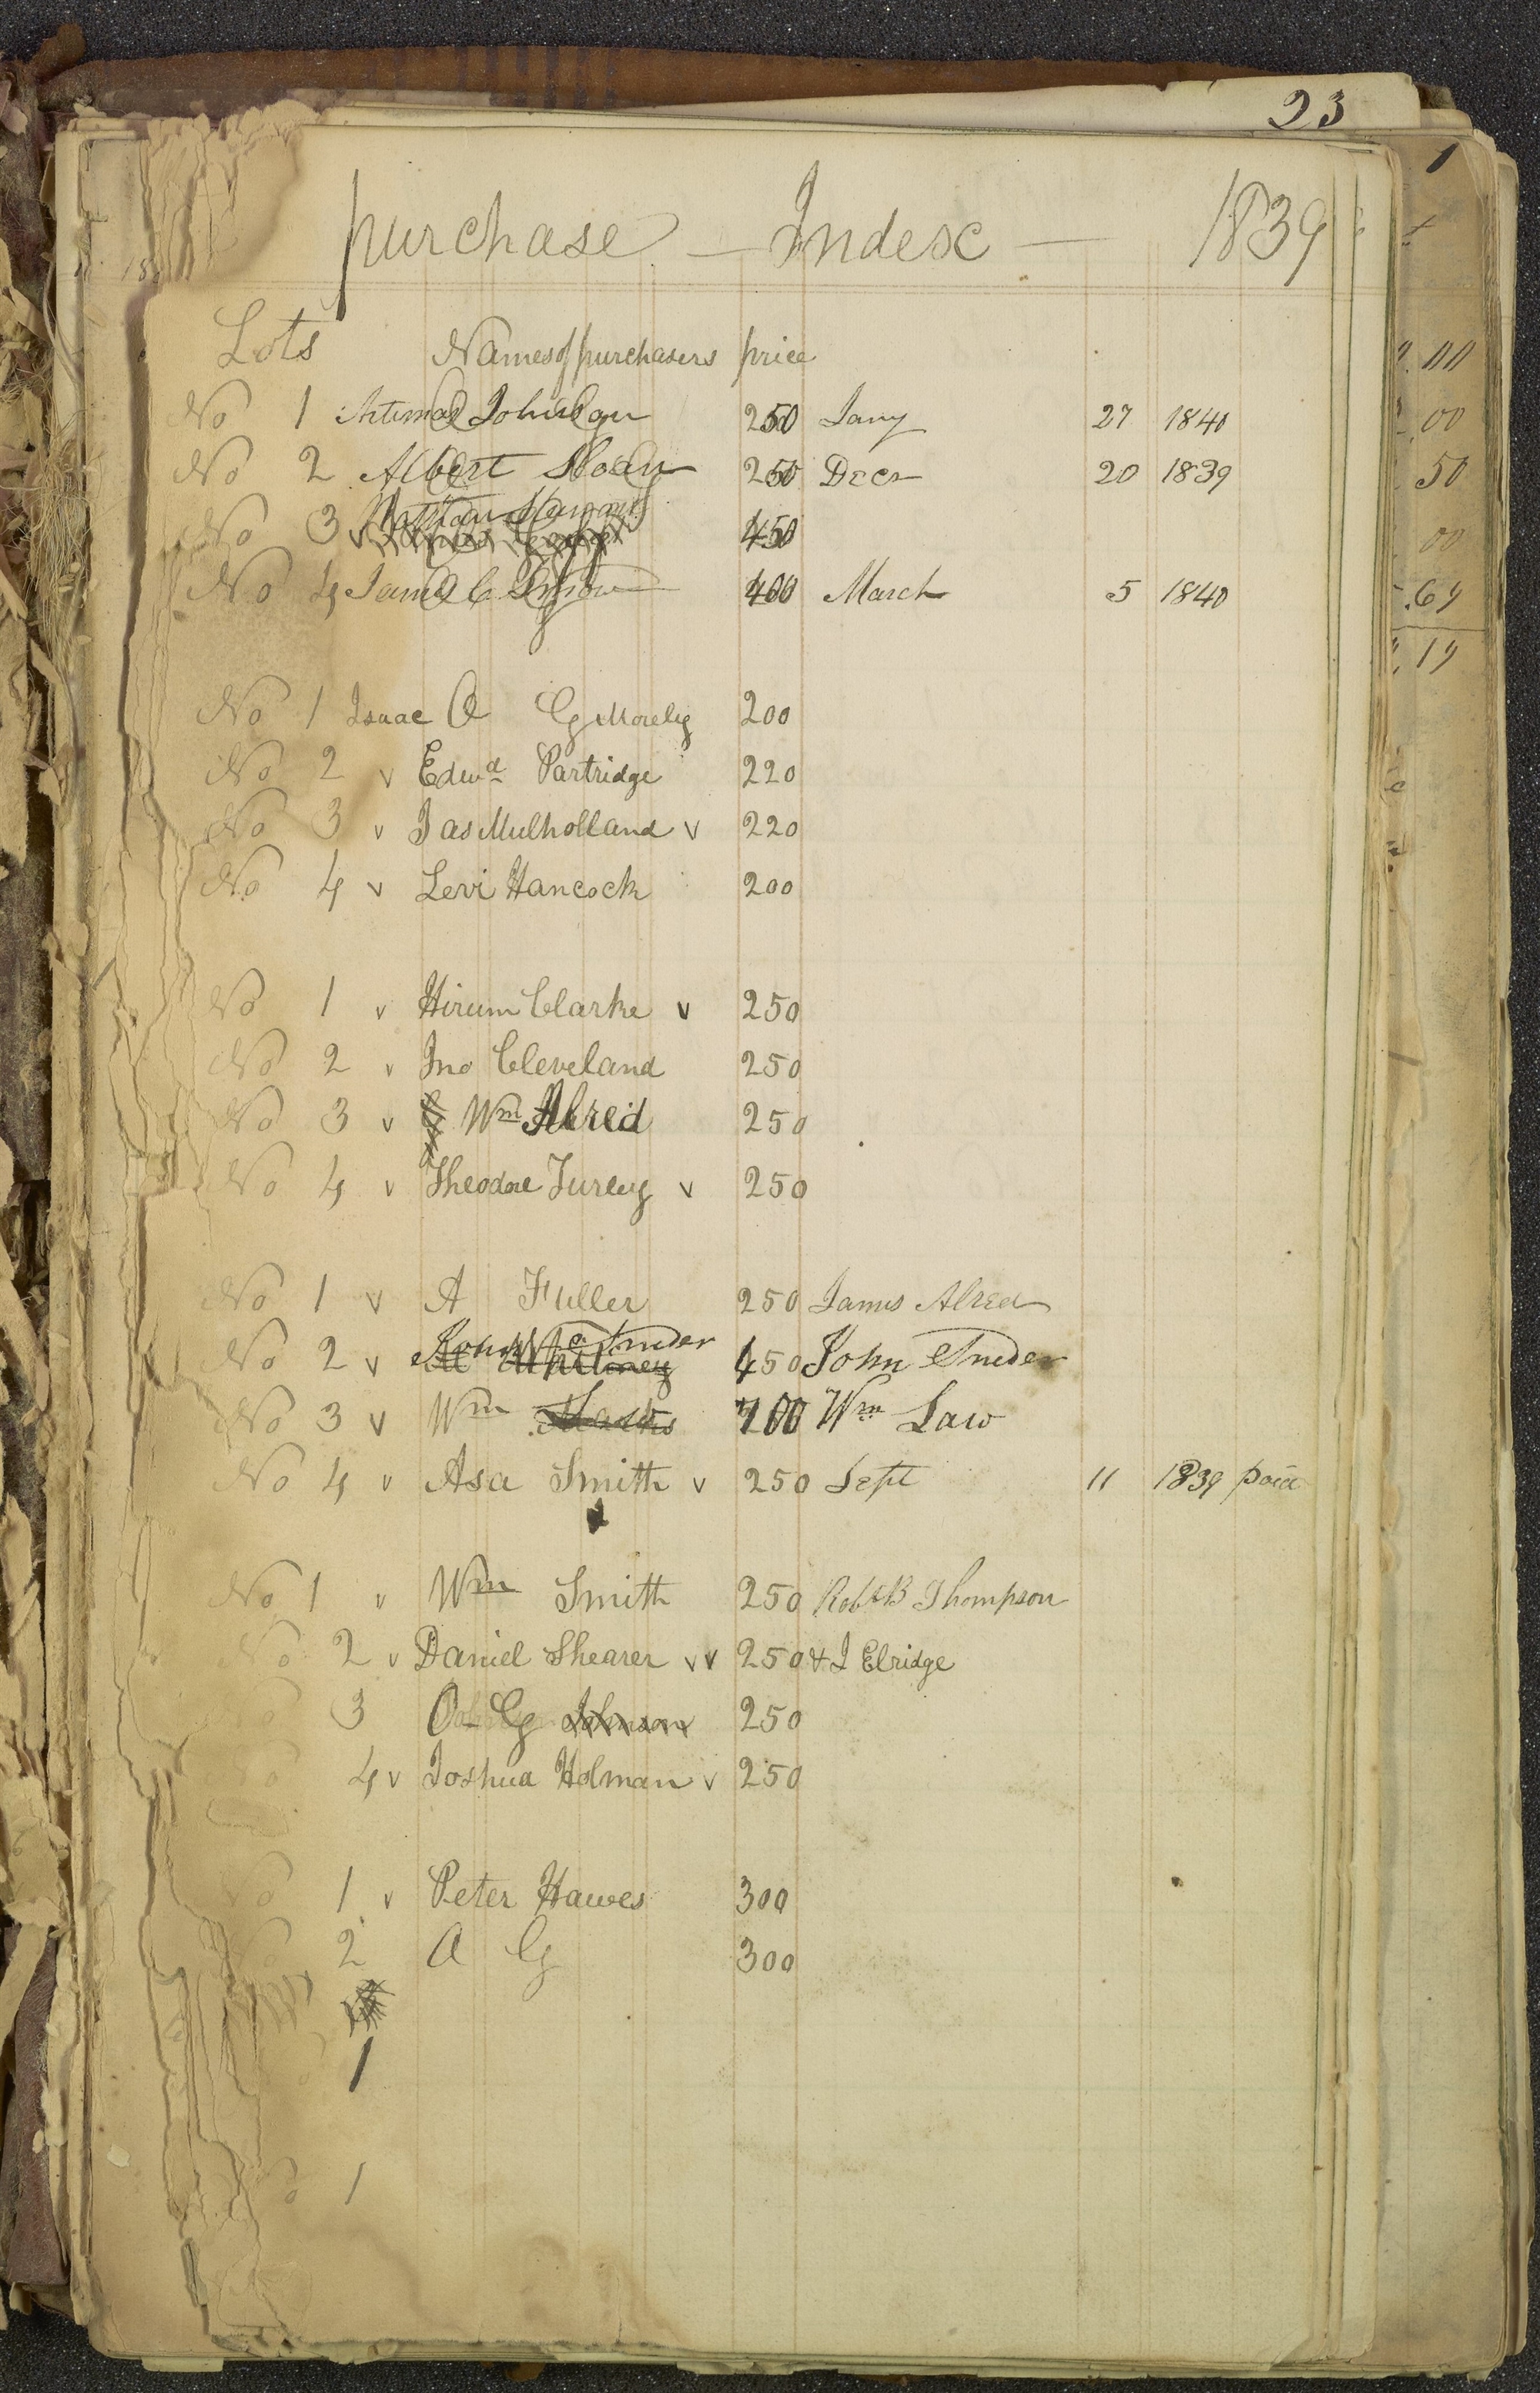 23
purchase — Index — 1839
Lots Names of purchasers price
No 1 Artimas Johnson 250 Jany 27 1840
No 2 Albert Sloan 250 Decr 20 1839
No 3 450
No 4 James C Snow 400 March 5 1840
No 1 Isaac O G Morely 200
No 2 v Edwd Partridge 220
No 3 v Jas Mulholland v 220
No 4 v Levi Hancock 200
No 1 v Hirum Clarke v 250
No 2 v Jno Cleveland 250
No 3 v Wm Alred 250
No 4 v Theodore Turley v 250
No 1 v A Fuller 250 James Alred
No 2 v John Snider Whitney 450 John Snider
No 3 v Wm Marks 700 Wm Law
No 4 v Asa Smith v 250 Sept 11 1839 paid
No 1 v Wm Smith 250 Robt B Thompson
No 2 v Daniel Shearer v v 250 & J Elridge
No 3 O G Johnson 250
No 4 v Joshua Holman v 250
No 1 v Peter Hawes 300
No 2 O G 300
1
No 1
1
00
00
50
00
.69
19